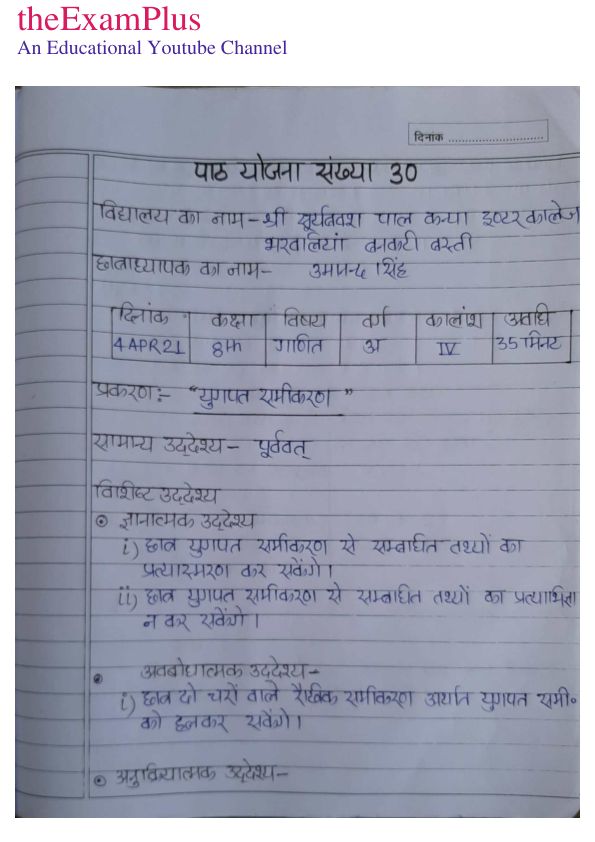 theExamPlus
An Educational Youtube Channel
दिनांक
पाठ योजना संख्या 30
विद्यालय का नाम – श्री सूर्यबक्श पाल कन्या इण्टर कालेज
बनकटी बस्ती
छात्राध्यापक का नाम – सिंह
दिनांक कक्षा विषय वर्ग कालांश अवधि
4 APR 21 8th गणित अ IV 35 मिनट
प्रकरण:- "युगपत समीकरण"
सामान्य उद्देश्य – पूर्ववत्
विशिष्ट उद्देश्य
ज्ञानात्मक उद्देश्य
i) छात्र युगपत समीकरण से सम्बंधित तथ्यों का
प्रत्यास्मरण कर सकेंगे।
ii) छात्र युगपत समीकरण से सम्बंधित तथ्यों का प्रत्याभिज्ञा
न कर सकेंगे।
अवबोधात्मक उद्देश्य –
i) छात्र दो चरों वाले रैखिक समीकरण अर्थात युगपत समी॰
को हलकर सकेंगे।
अनुक्रियात्मक उद्देश्य –